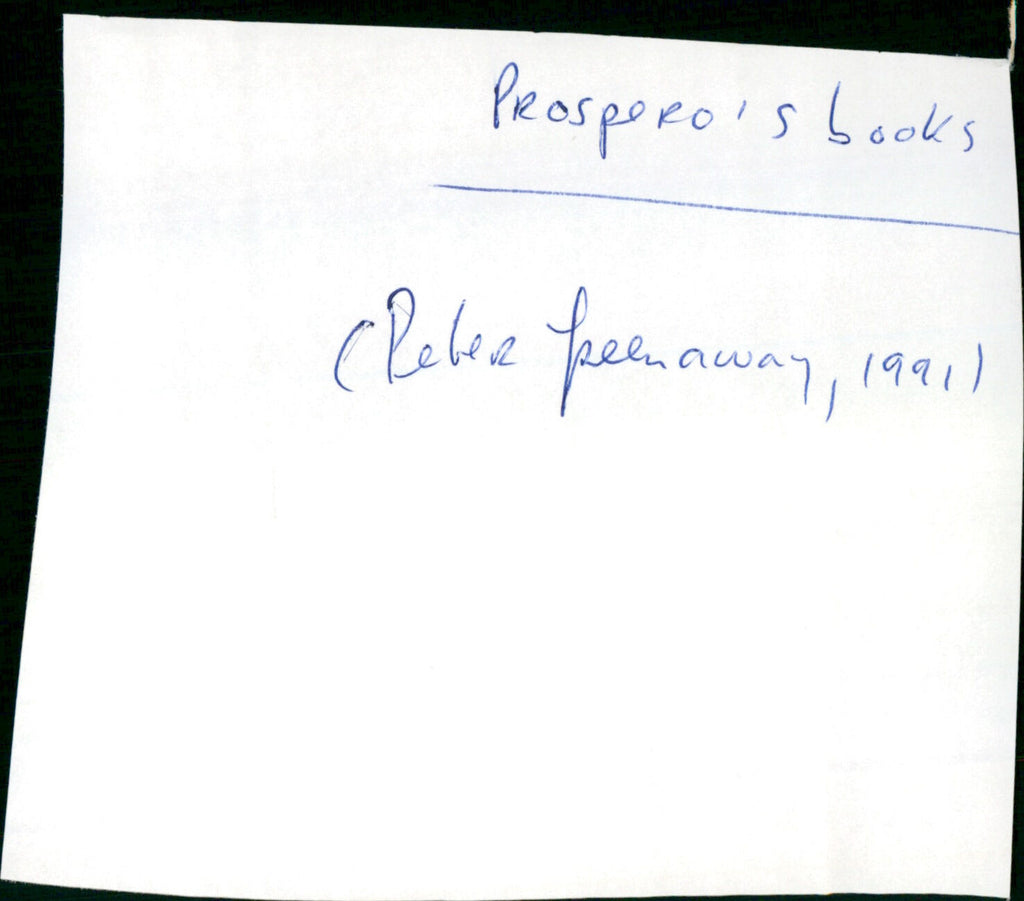 Prospero's books
(Peter Greenaway, 1991)